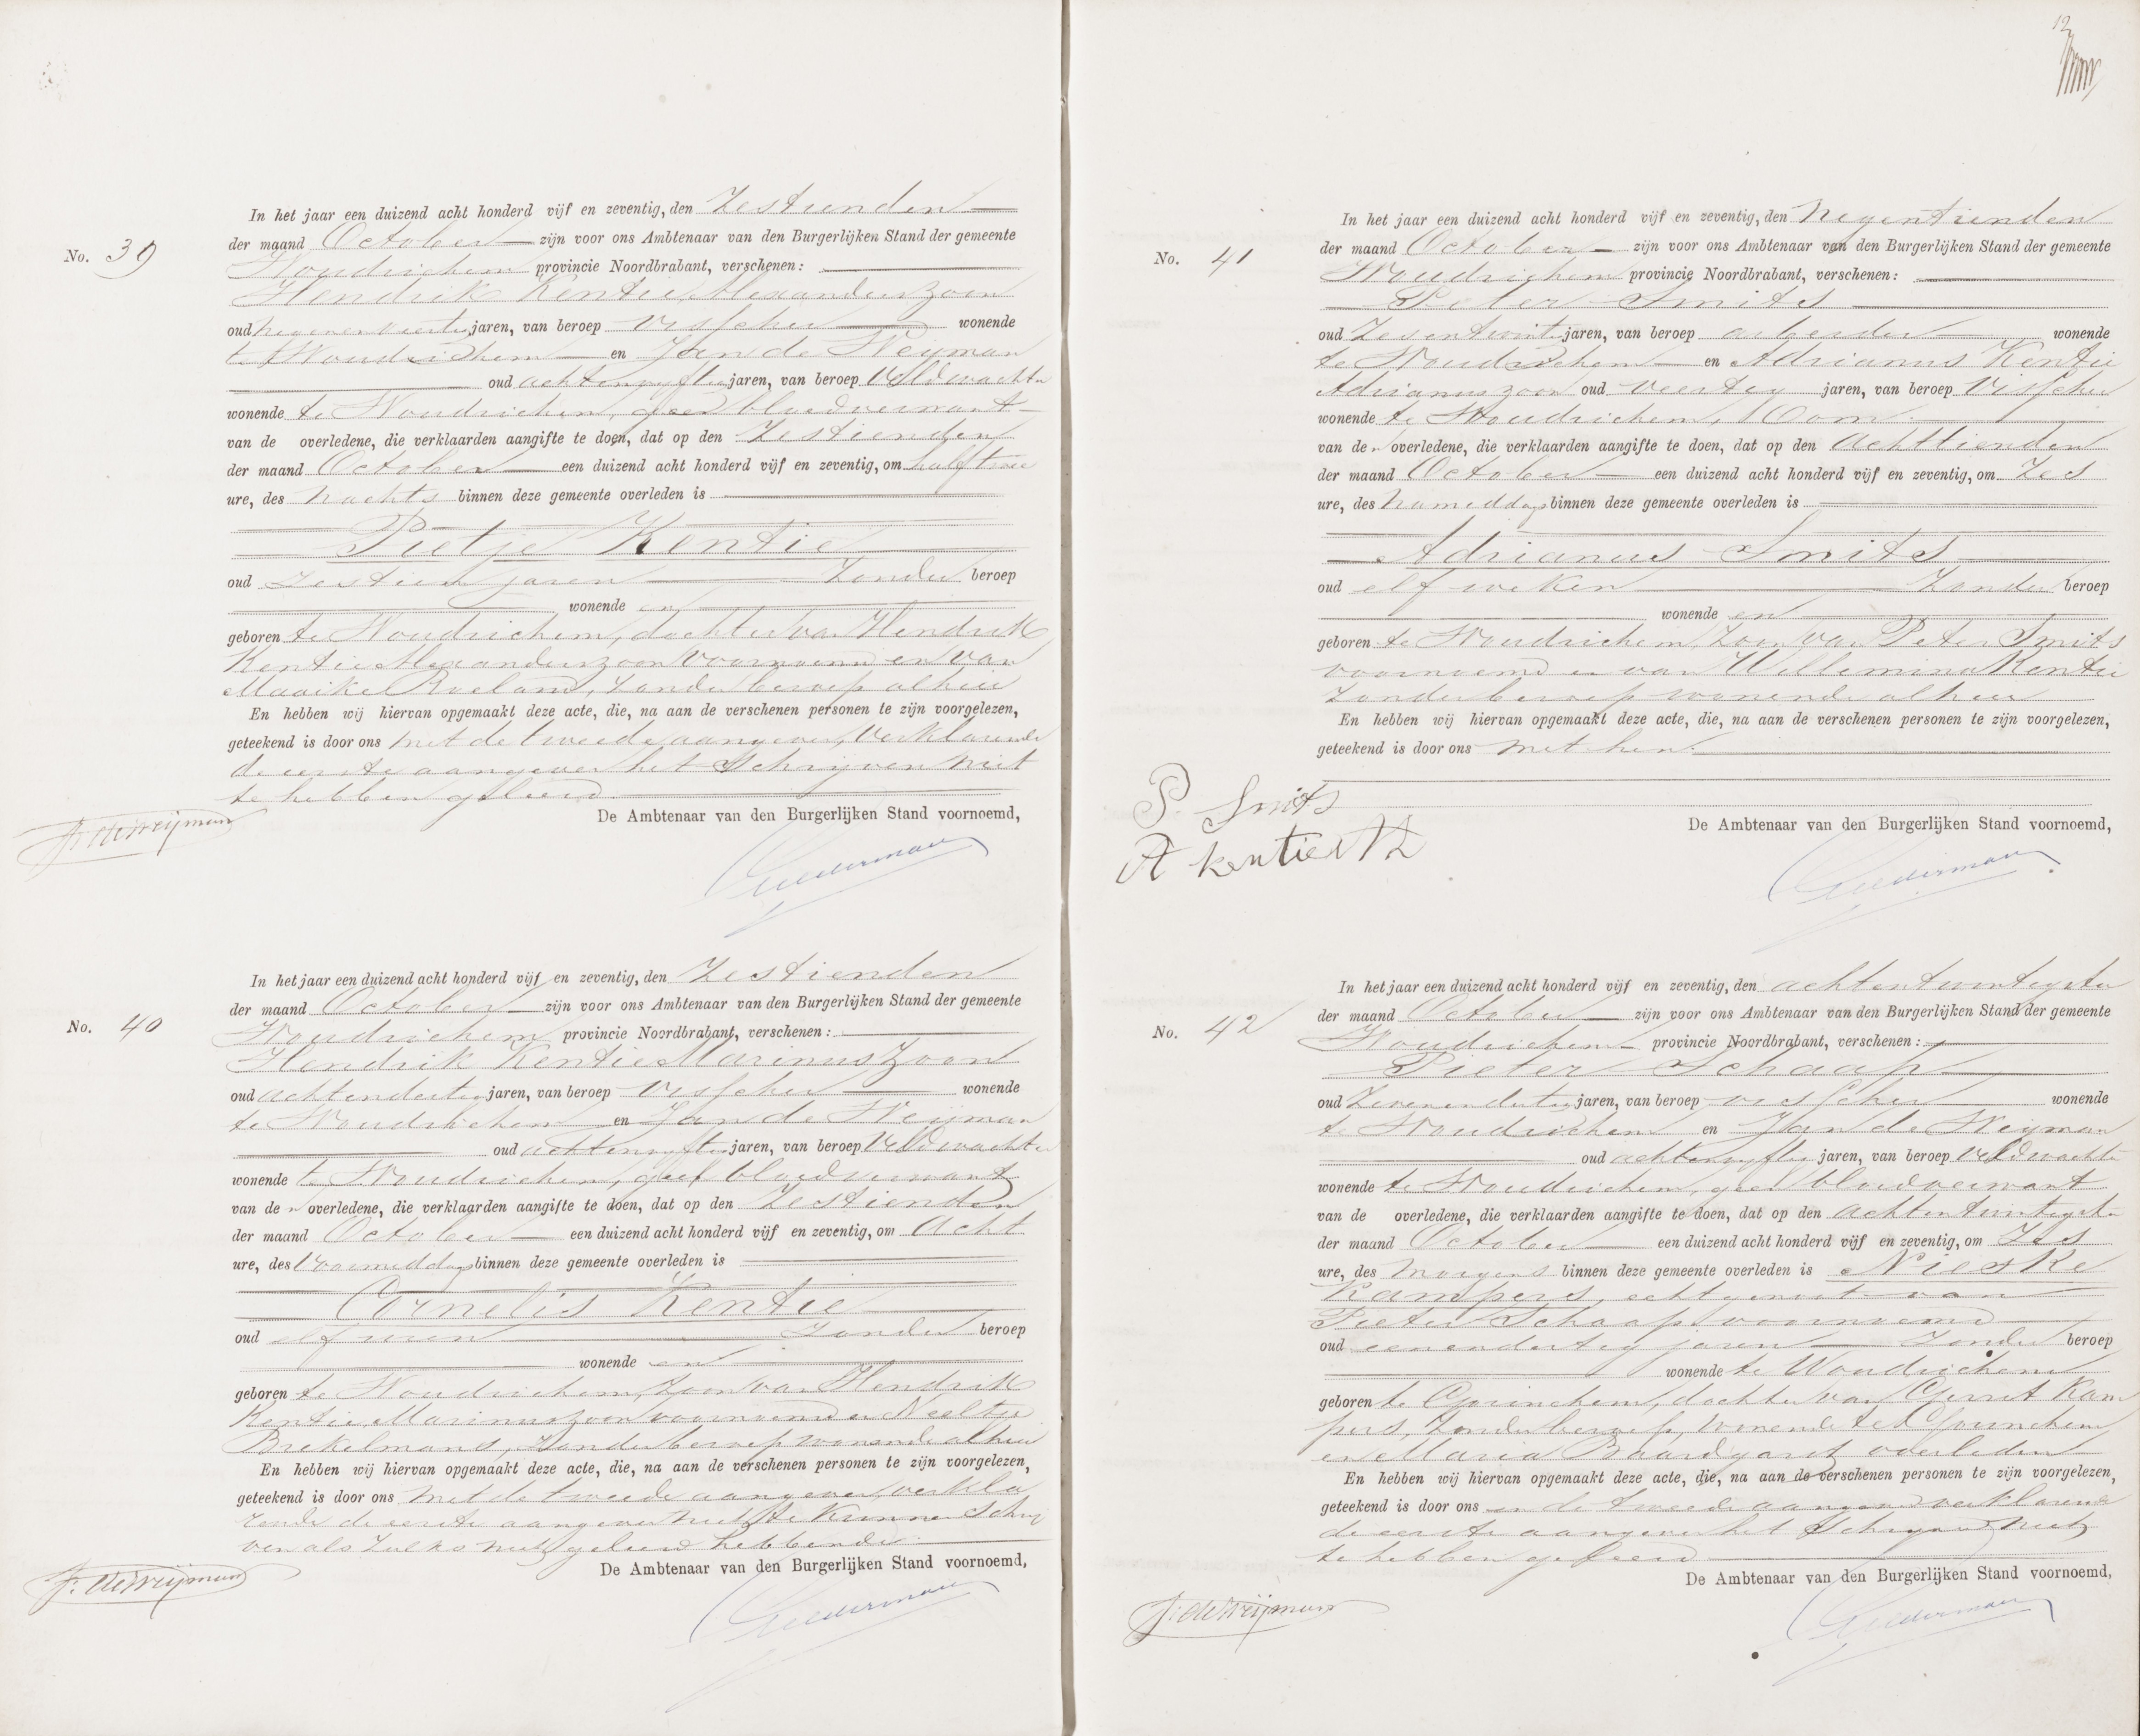 In het jaar een duizend acht honderd vijf en zeventig, den Zestienden
der maand October zijn voor ons Ambtenaar van den Burgerlijken Stand der gemeente
No. 39
Woudrichem provincie Noordbrabant, verschenen:
Hendrik Kentie Alexanderszoon
oud negenenveertig jaren, van beroep visscher wonende
te Woudrichem en Jan de Weijman
oud achtenvyftig jaren, van beroep Veldwachter
wonende te Woudrichem, geen bloedverwant
van de overledene, die verklaarden aangifte te doen, dat op den Zestienden
der maand October een duizend acht honderd vijf en zeventig, om half twee
ure, des nachts binnen deze gemeente overleden is
Pietje Kentie
oud zestien jaren Zonder beroep
wonende en
geboren te Woudrichem, dochter van Hendrik
Kentie Alexanderszoon voornoemd en van
Maaike Roeland, zonder beroep alhier
En hebben wij hiervan opgemaakt deze acte, die, na aan de verschenen personen te zijn voorgelezen,
geteekend is door ons met de tweede aangever, verklarende
de eerste aangever het schrijven niet
te hebben geleerd.
De Ambtenaar van den Burgerlijken Stand voornoemd,
J. de Weijman
In het jaar een duizend acht honderd vijf en zeventig, den Zestienden
der maand October zijn voor ons Ambtenaar van den Burgerlijken Stand der gemeente
No. 40
Woudrichem provincie Noordbrabant, verschenen:
Hendrik Kentie Marinuszoon
oud achtendertig jaren, van beroep visscher wonende
te Woudrichem en Jan de Weijman
oud achtenvyftig jaren, van beroep Veldwachter
wonende te Woudrichem, geen bloedverwant
van de n overledene, die verklaarden aangifte te doen, dat op den Zestienden
der maand October een duizend acht honderd vijf en zeventig, om acht
ure, des Voormiddags binnen deze gemeente overleden is
Cornelis Kentie
oud elf uren Zonder beroep
wonende en
geboren te Woudrichem, zoon van Hendrik
Kentie Marinuszoon voornoemd en Neeltje
Brekelmans, zonder beroep wonende alhier
En hebben wij hiervan opgemaakt deze acte, die, na aan de verschenen personen te zijn voorgelezen,
geteekend is door ons met de tweede aangever, verkla
rende de eerste aangever niet te kunnen schrij
ven als zulks niet geleerd hebbende.
De Ambtenaar van den Burgerlijken Stand voornoemd,
J. de Weijman
12
In het jaar een duizend acht honderd vijf en zeventig, den Negentienden
der maand October zijn voor ons Ambtenaar van den Burgerlijken Stand der gemeente
No. 41
Woudrichem provincie Noordbrabant, verschenen:
Peter Smits
oud zesentwintig jaren, van beroep arbeider wonende
te Woudrichem en Adrianus Kentie
Adrianuszoon oud veertig jaren, van beroep visscher
wonende te Woudrichem, Oom
van den overledene, die verklaarden aangifte te doen, dat op den achttienden
der maand October een duizend acht honderd vijf en zeventig, om zes
ure, des namiddags binnen deze gemeente overleden is
Adrianus Smits
oud elf weken Zonder beroep
wonende en
geboren te Woudrichem, zoon van Peter Smits
voornoemd en van Willemina Kentie
zonder beroep wonende alhier
En hebben wij hiervan opgemaakt deze acte, die, na aan de verschenen personen te zijn voorgelezen,
geteekend is door ons met hen.
P. Smits
De Ambtenaar van den Burgerlijken Stand voornoemd,
A kentie AZ
In het jaar een duizend acht honderd vijf en zeventig, den achtentwintigsten
der maand October zijn voor ons Ambtenaar van den Burgerlijken Stand der gemeente
No. 42
Woudrichem provincie Noordbrabant, verschenen:
Pieter Schaap
oud Zevenendertig jaren, van beroep visscher wonende
te Woudrichem en Jan de Weijman
oud achtenvyftig jaren, van beroep Veldwachter
wonende te Woudrichem, geen bloedverwant
van de overledene, die verklaarden aangifte te doen, dat op den achtentwintigsten
der maand October een duizend acht honderd vijf en zeventig, om zes
ure, des morgens binnen deze gemeente overleden is Nieske
Kampers, echtgenoot van
Pieter Schaap voornoemd
oud eenendertig jaren Zonder beroep
wonende te Woudrichem
geboren te Gorinchem, dochter van Gerrit Kam
pers, zonder beroep, wonende te Gorinchem
en Maria overleden
En hebben wij hiervan opgemaakt deze acte, die, na aan de verschenen personen te zijn voorgelezen,
geteekend is door ons en de tweede aangever verklarende
de eerste aangever het schrijven niet
te hebben geleerd
De Ambtenaar van den Burgerlijken Stand voornoemd,
J. de Weijman